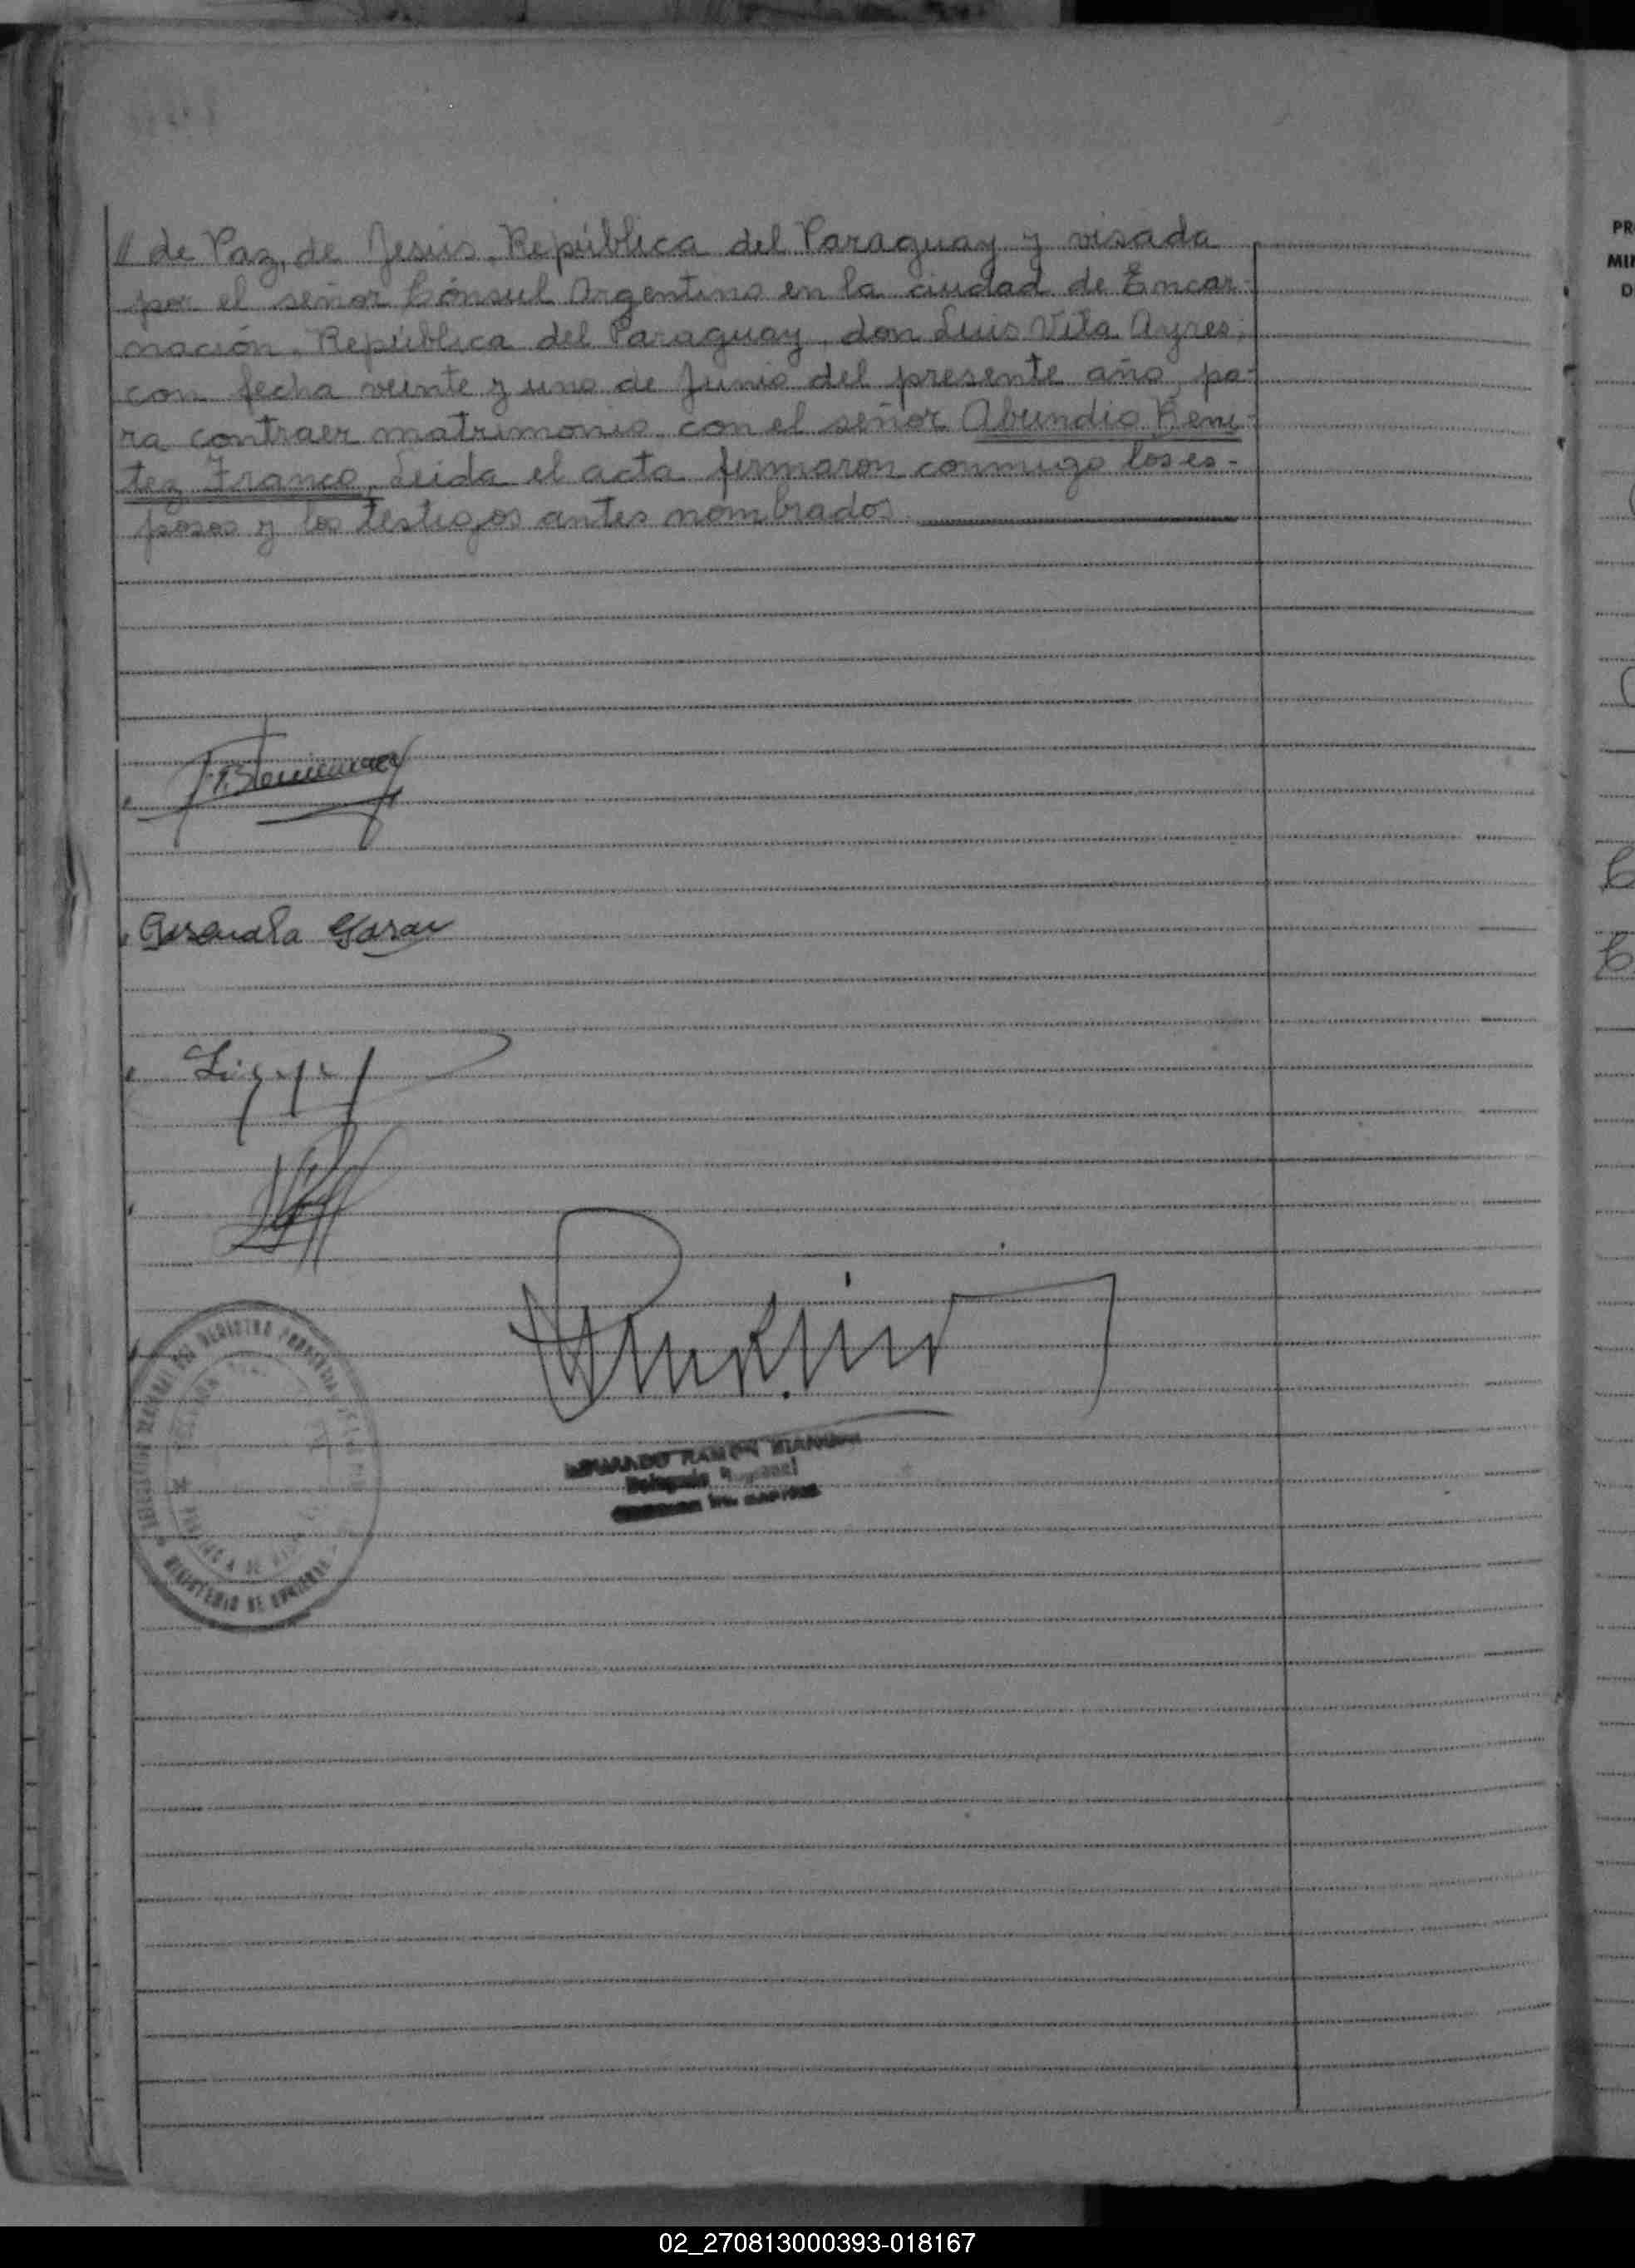 // de Paz, de Jesús, República del Paraguay y visada
por el señor Cónsul Argentino en la ciudad de Encar-
nación, República del Paraguay, don Luis Vila Ayres,
con fecha veinte y uno de Junio del presente año, pa-
ra contraer matrimonio con el señor Abundio Bení-
tez Franco. Leida el acta firmaron conmigo los es-
posos y los testigos antes nombrados
Garay
RAMON
Delegado
MINISTERIO DE GOBIERNO
PR
MIN
D
02_270813000393-018167